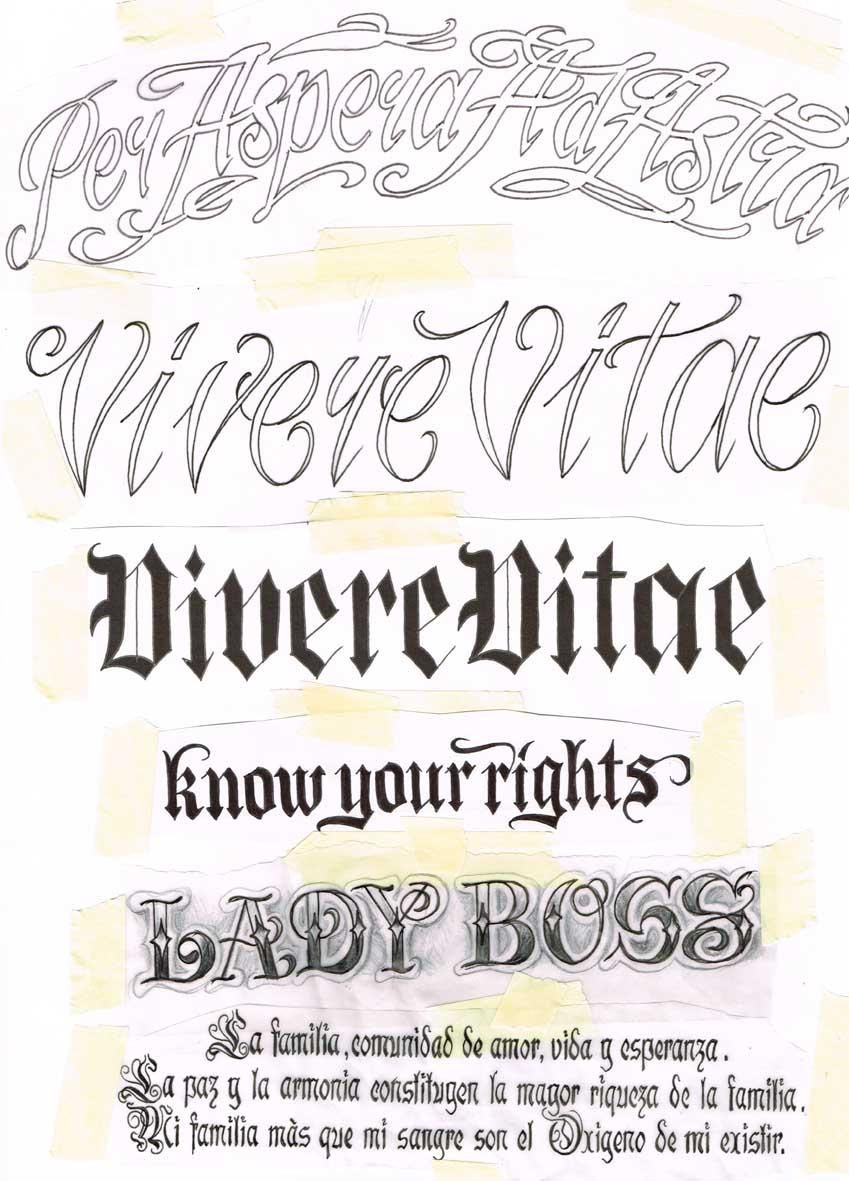 Per Aspera Ad Astra
Vivere Vitae
Vivere Vitae
know your rights
LADY BOSS
La familia, comunidad de amor, vida y esperanza.
La paz y la armonia constituyen la mayor riqueza de la familia.
Mi familia màs que mi sangre son el Oxigeno de mi existir.